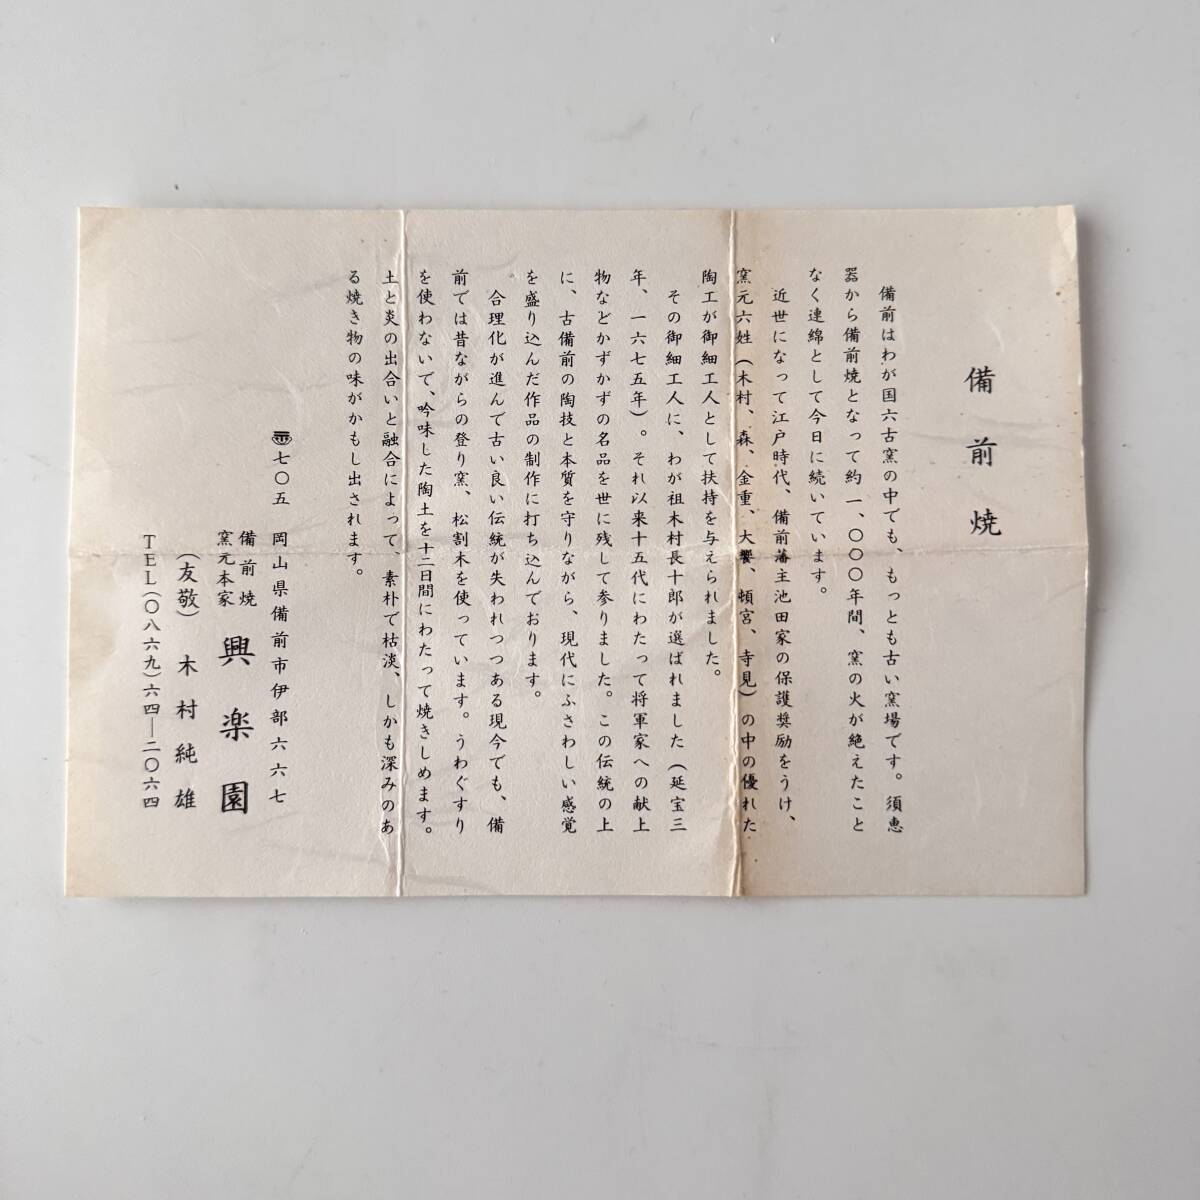 備前焼
備前はわが国六古窯の中でも、もっとも古い窯場です。須恵
器から備前焼となって約一、〇〇〇年間、窯の火が絶えたこと
なく連綿として今日に続いています。
近世になって江戸時代、備前藩主池田家の保護奨励をうけ、
窯元六姓(木村、森、金重、大饗、頓宮、寺見)の中の優れた
陶工が御細工人として扶持を与えられました。
その御細工人に、わが祖木村長十郎が選ばれました(延宝三
年、一六七五年)。それ以来十五代にわたって将軍家への献上
物などかずかずの名品を世に残して参りました。この伝統の上
に、古備前の陶技と本質を守りながら、現代にふさわしい感覚
を盛り込んだ作品の制作に打ち込んでおります。
合理化が進んで古い良い伝統が失われつつある現今でも、備
前では昔ながらの登り窯、松割木を使っています。うわぐすり
を使わないで、吟味した陶土を十二日間にわたって焼きしめます。
土と炎の出合いと融合によって、素朴で枯淡、しかも深みのあ
る焼き物の味がかもし出されます。
〠七〇五 岡山県備前市伊部六六七
備前焼
窯元本家 興楽園
(友敬) 木村純雄
TEL(〇八六九)六四―二〇六四